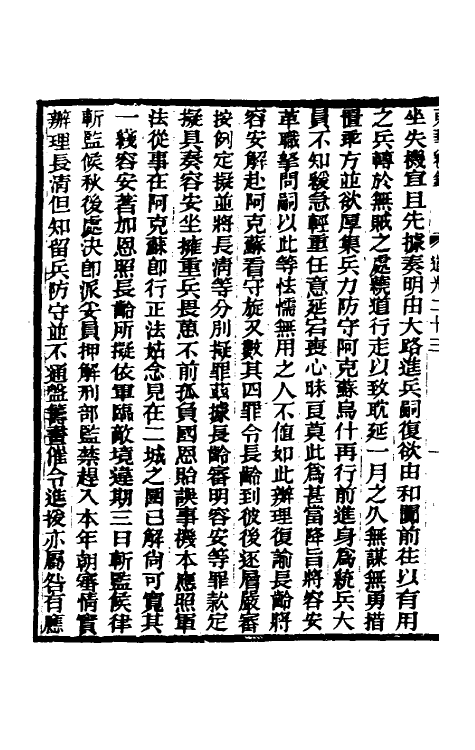 道光二十三
坐失機宜且先據奏明由大路進兵嗣復欲由和闐前往以有用
之兵轉於無賊之處繞道行走以致耽延一月之久無謀無勇措
置乖方並欲厚集兵力防守阿克蘇烏什再行前進身爲統兵大
員不知緩急輕重任意延宕喪心昧良莫此爲甚當降旨將容安
革職拏問嗣以此等怯懦無用之人不値如此辦理復諭長齡將
容安解赴阿克蘇看守旋又數其四罪令長齡到彼後逐層嚴審
按例定擬並將長淸等分別擬罪茲據長齡審明容安等罪款定
擬具奏容安坐擁重兵畏葸不前孤負國恩貽誤事機本應照軍
法從事在阿克蘇卽行正法姑念見在二城之圍已解尙可寬其
一綫容安著加恩照長齡所擬依軍臨敵境違期三日斬監候律
斬監候秋後處決卽派妥員押解刑部監禁趕入本年朝審情實
辦理長淸但知留兵防守並不通盤籌畫催令進援亦屬咎有應